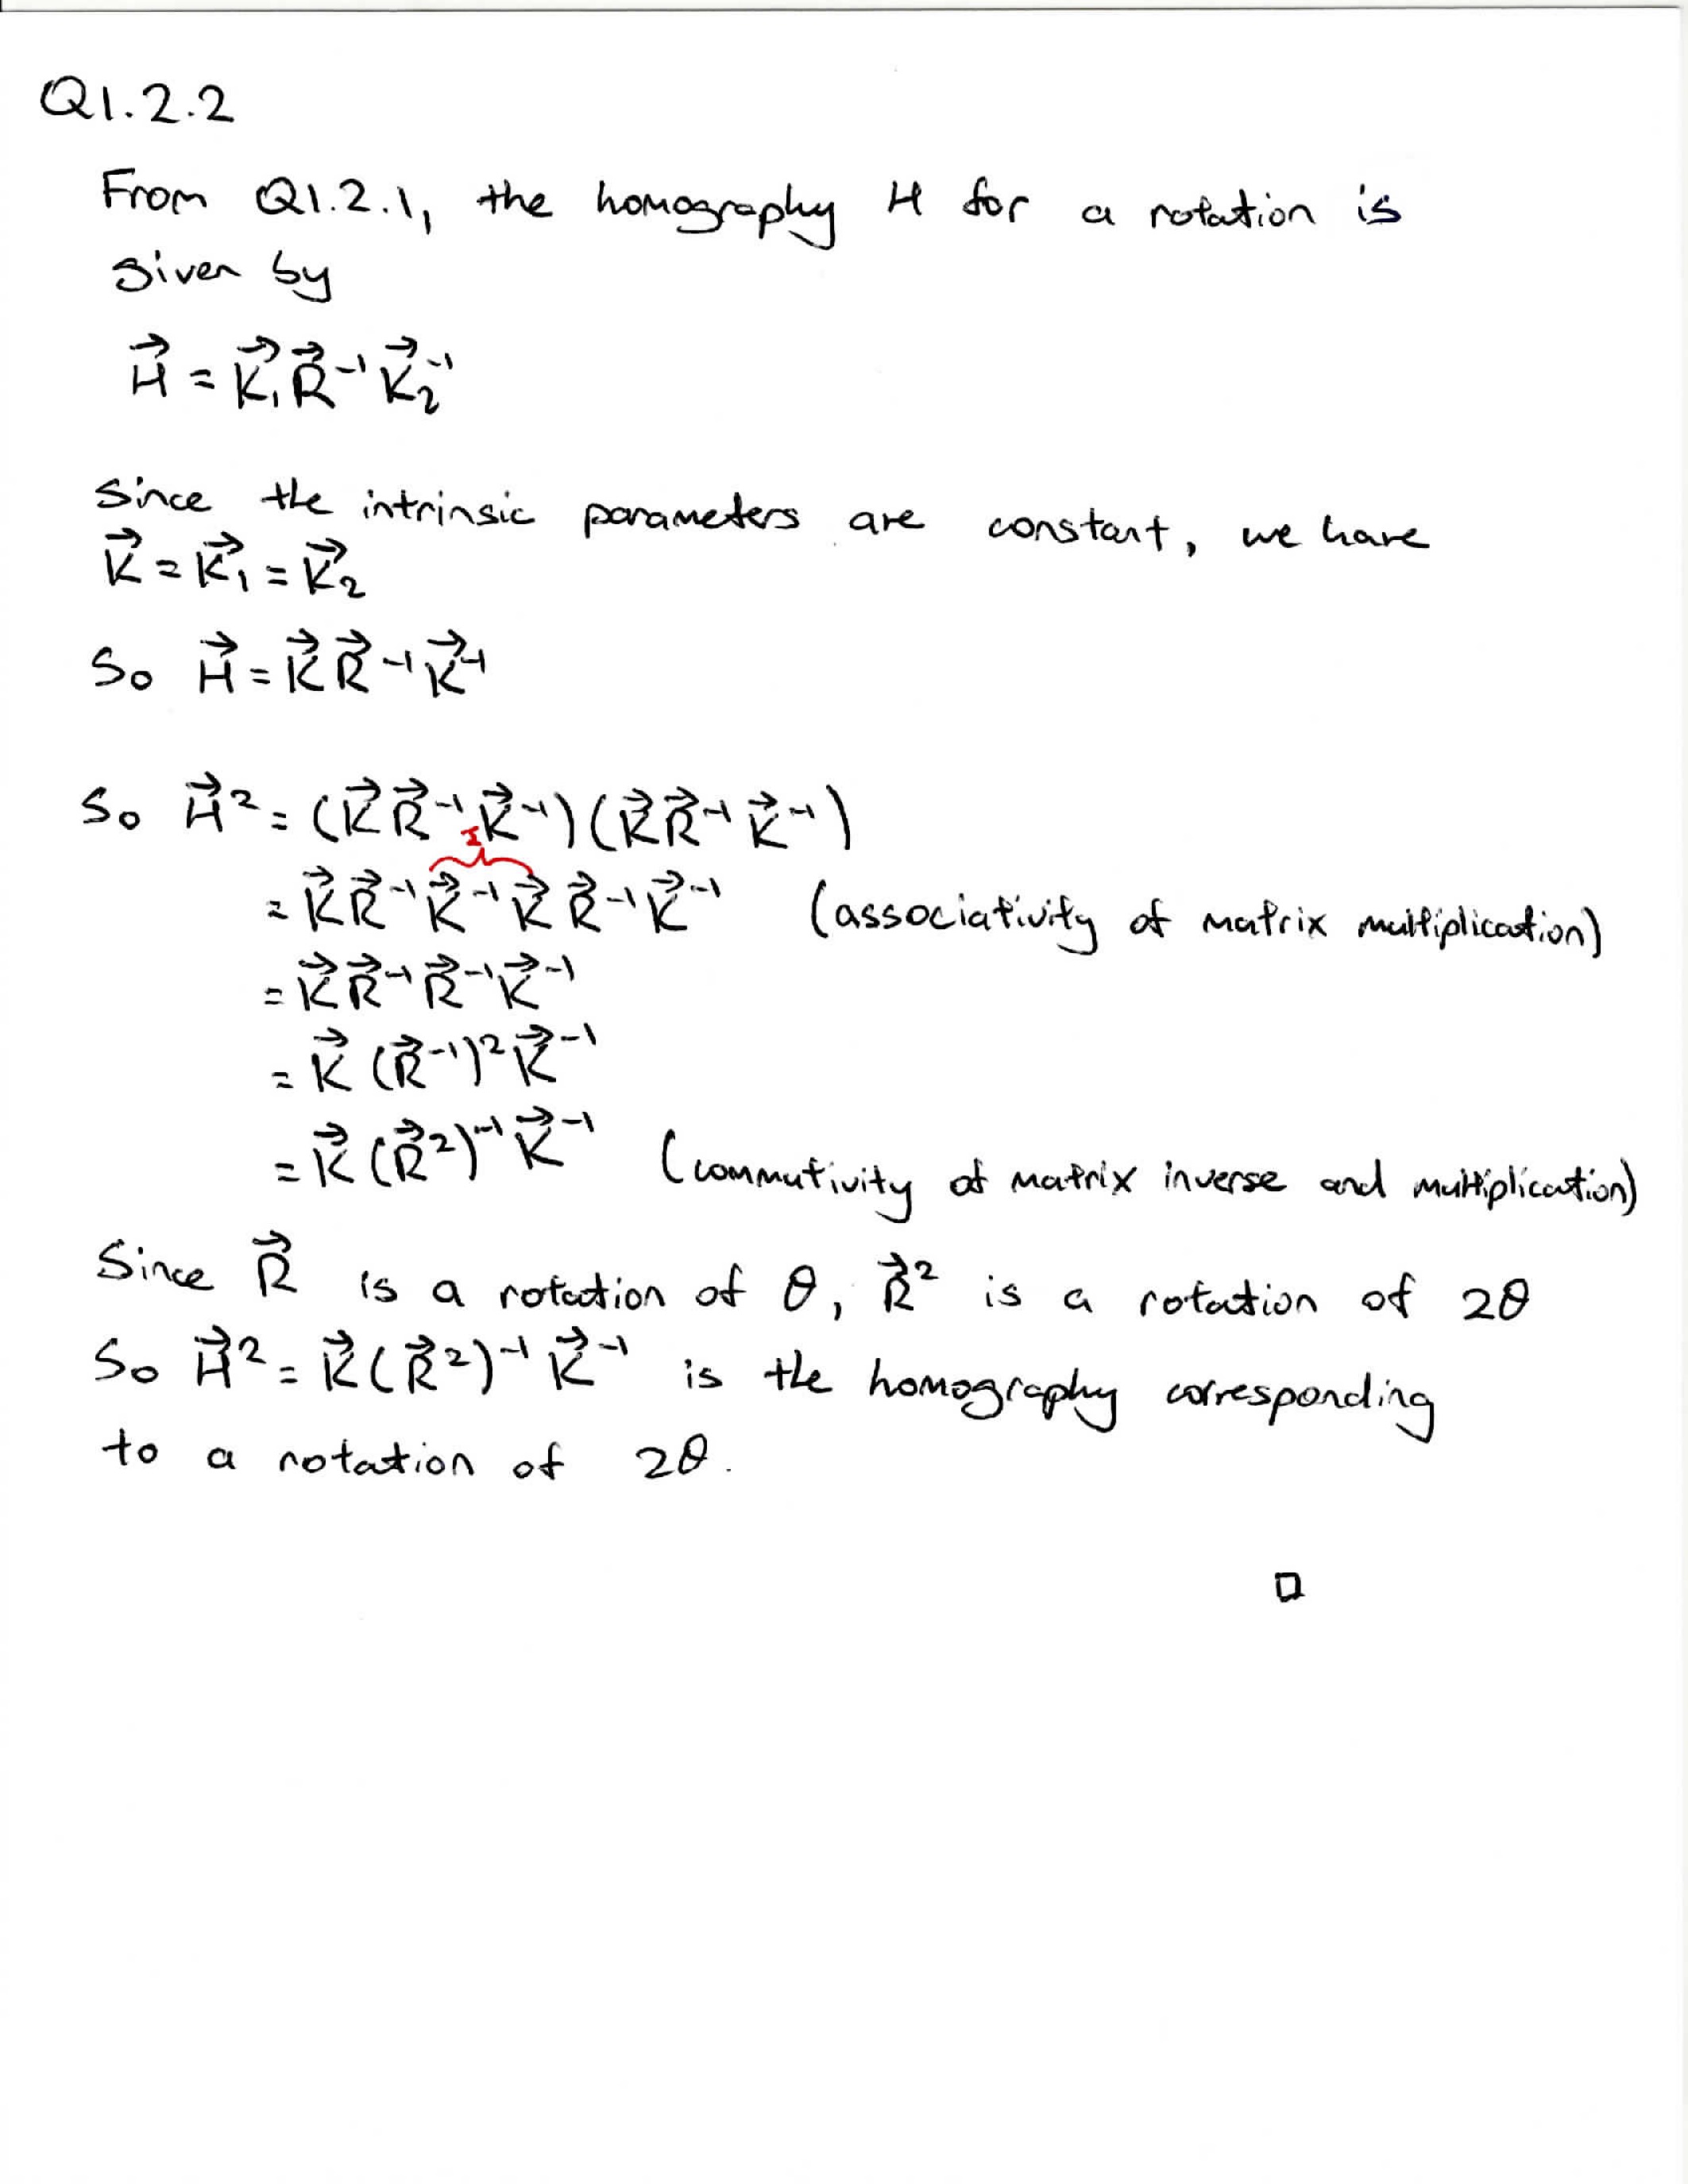 Q1.2.2
From Q1.2.1, the homography H for a rotation is
given by
H⃗ = K⃗₁R⃗⁻¹K⃗₂⁻¹
Since the intrinsic parameters are constant, we have
K⃗ = K⃗₁ = K⃗₂
So H⃗ = K⃗R⃗⁻¹K⃗⁻¹
So H⃗² = (K⃗R⃗⁻¹K⃗⁻¹)(K⃗R⃗⁻¹K⃗⁻¹)
I
= K⃗R⃗⁻¹K⃗⁻¹K⃗R⃗⁻¹K⃗⁻¹ (associativity of matrix multiplication)
= K⃗R⃗⁻¹R⃗⁻¹K⃗⁻¹
= K⃗(R⃗⁻¹)²K⃗⁻¹
= K⃗(R⃗²)⁻¹K⃗⁻¹ (commutivity of matrix inverse and multiplication)
Since R⃗ is a rotation of θ, R⃗² is a rotation of 2θ
So H⃗² = K⃗(R⃗²)⁻¹K⃗⁻¹ is the homography corresponding
to a rotation of 2θ.
□